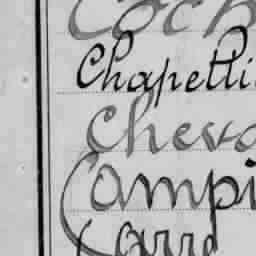 Coch
Chapelli
Cheva
Campi
Carré